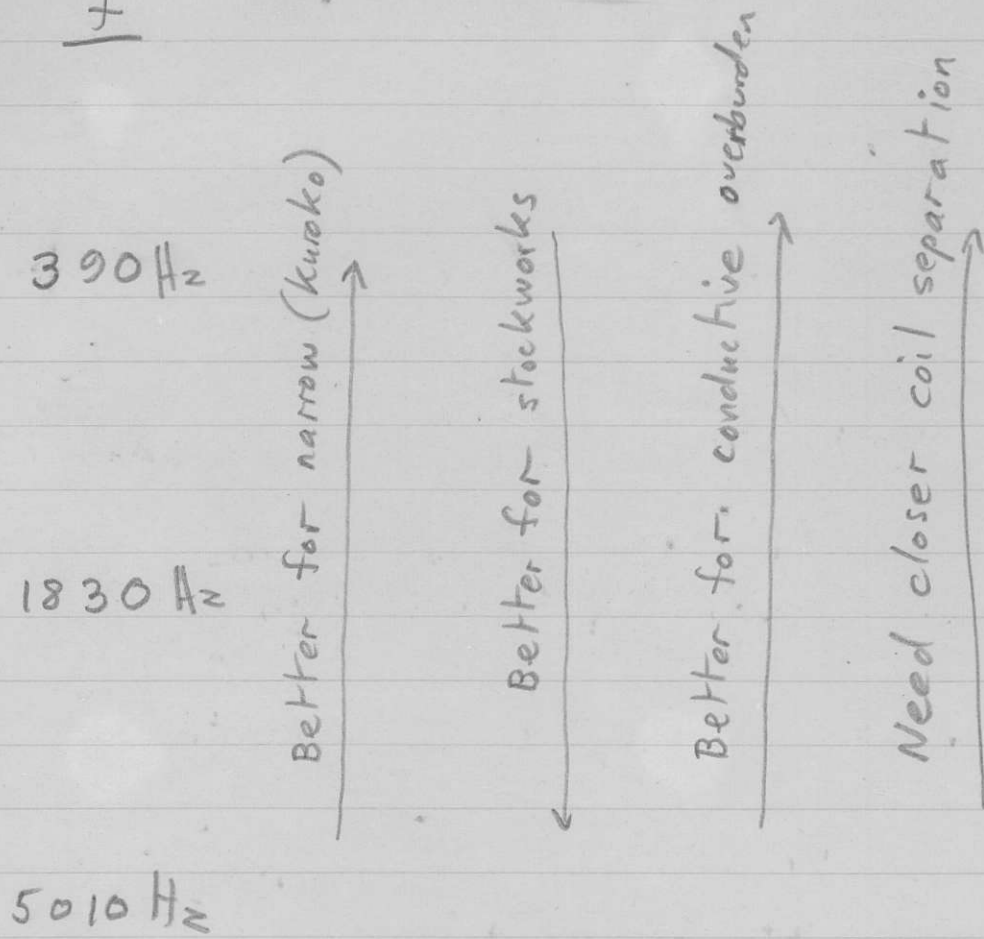 390 Hz
1830 Hz
5010 Hz
Better for narrow (Kuroko)
Better for stockworks
Better for conductive overburden
Need closer coil separation